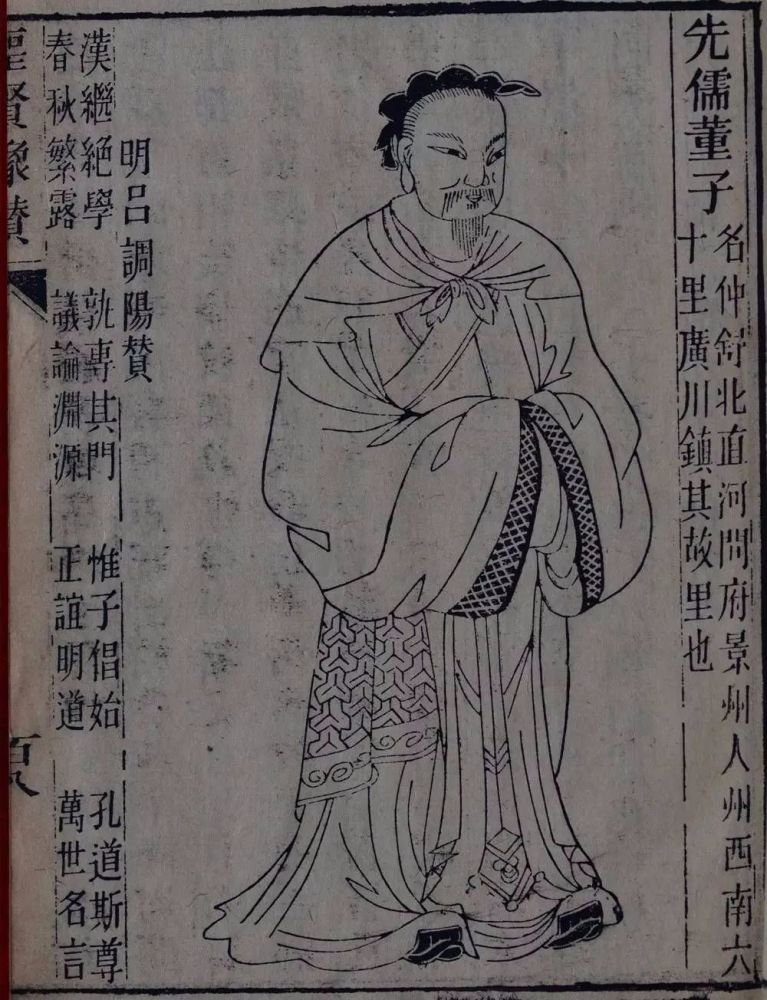 先儒董子
名仲舒北直河間府景州人州西南六
十里廣川鎮其故里也
明呂調陽賛
漢繼絕學 孰專其門 惟子倡始 孔道斯尊
春秋繁露 議論淵源 正誼明道 萬世名言
聖賢像賛
百八